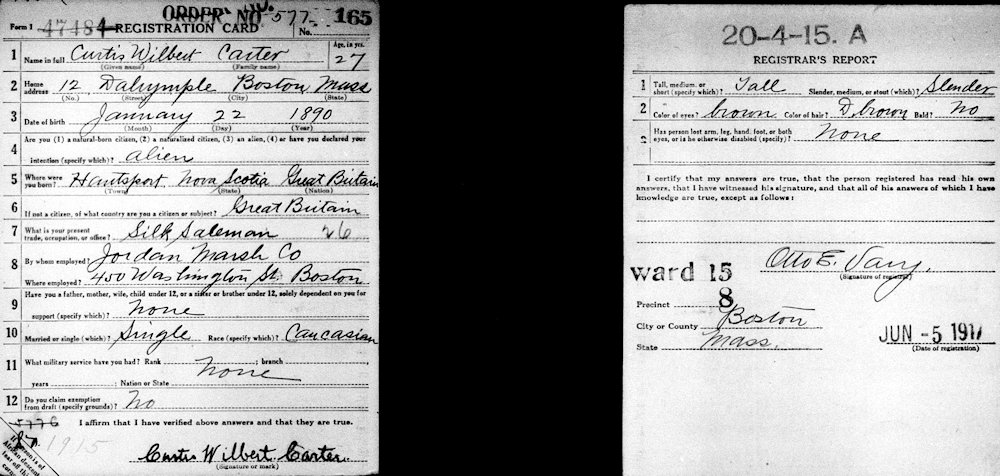 ORDER NO. 577 165
Form 1 47484 REGISTRATION CARD No.
1 Name in full Curtis Wilbert Carter Age, in yrs. 27
(Given name) (Family name)
2 Home address 12 Dalrymple Boston Mass
(No.) (Street) (City) (State)
3 Date of birth January 22 1890
(Month) (Day) (Year)
4 Are you (1) a natural-born citizen, (2) a naturalized citizen, (3) an alien, (4) or have you declared your
intention (specify which)? alien
5 Where were you born? Hantsport Nova Scotia Great Britain
(Town) (State) (Nation)
6 If not a citizen, of what country are you a citizen or subject? Great Britain
7 What is your present trade, occupation, or office? Silk Saleman 26
8 By whom employed? Jordan Marsh Co
Where employed? 450 Washington St. Boston
9 Have you a father, mother, wife, child under 12, or a sister or brother under 12, solely dependent on you for
support (specify which)? none
10 Married or single (which)? Single Race (specify which)? Caucasian
11 What military service have you had? Rank ; branch
years ; Nation or State none
12 Do you claim exemption from draft (specify grounds)? No
5776
I affirm that I have verified above answers and that they are true.
1915
Curtis Wilbert Carter.
(Signature or mark)
20-4-15. A
REGISTRAR'S REPORT
1 Tall, medium, or short (specify which)? Tall Slender, medium, or stout (which)? Slender
2 Color of eyes? brown Color of hair? D. brown Bald? No
3 Has person lost arm, leg, hand, foot, or both
eyes, or is he otherwise disabled (specify)? None
I certify that my answers are true, that the person registered has read his own
answers, that I have witnessed his signature, and that all of his answers of which I have
knowledge are true, except as follows:
Otto E.
(Signature of registrar)
ward 15
Precinct 8
City or County Boston
State Mass.
JUN -5 1917
(Date of registration)